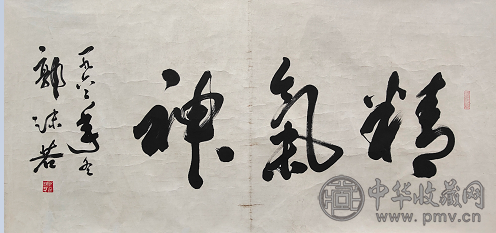 精氣神
一九六年冬
郭沫若
中华收藏网
www.pmv.cn